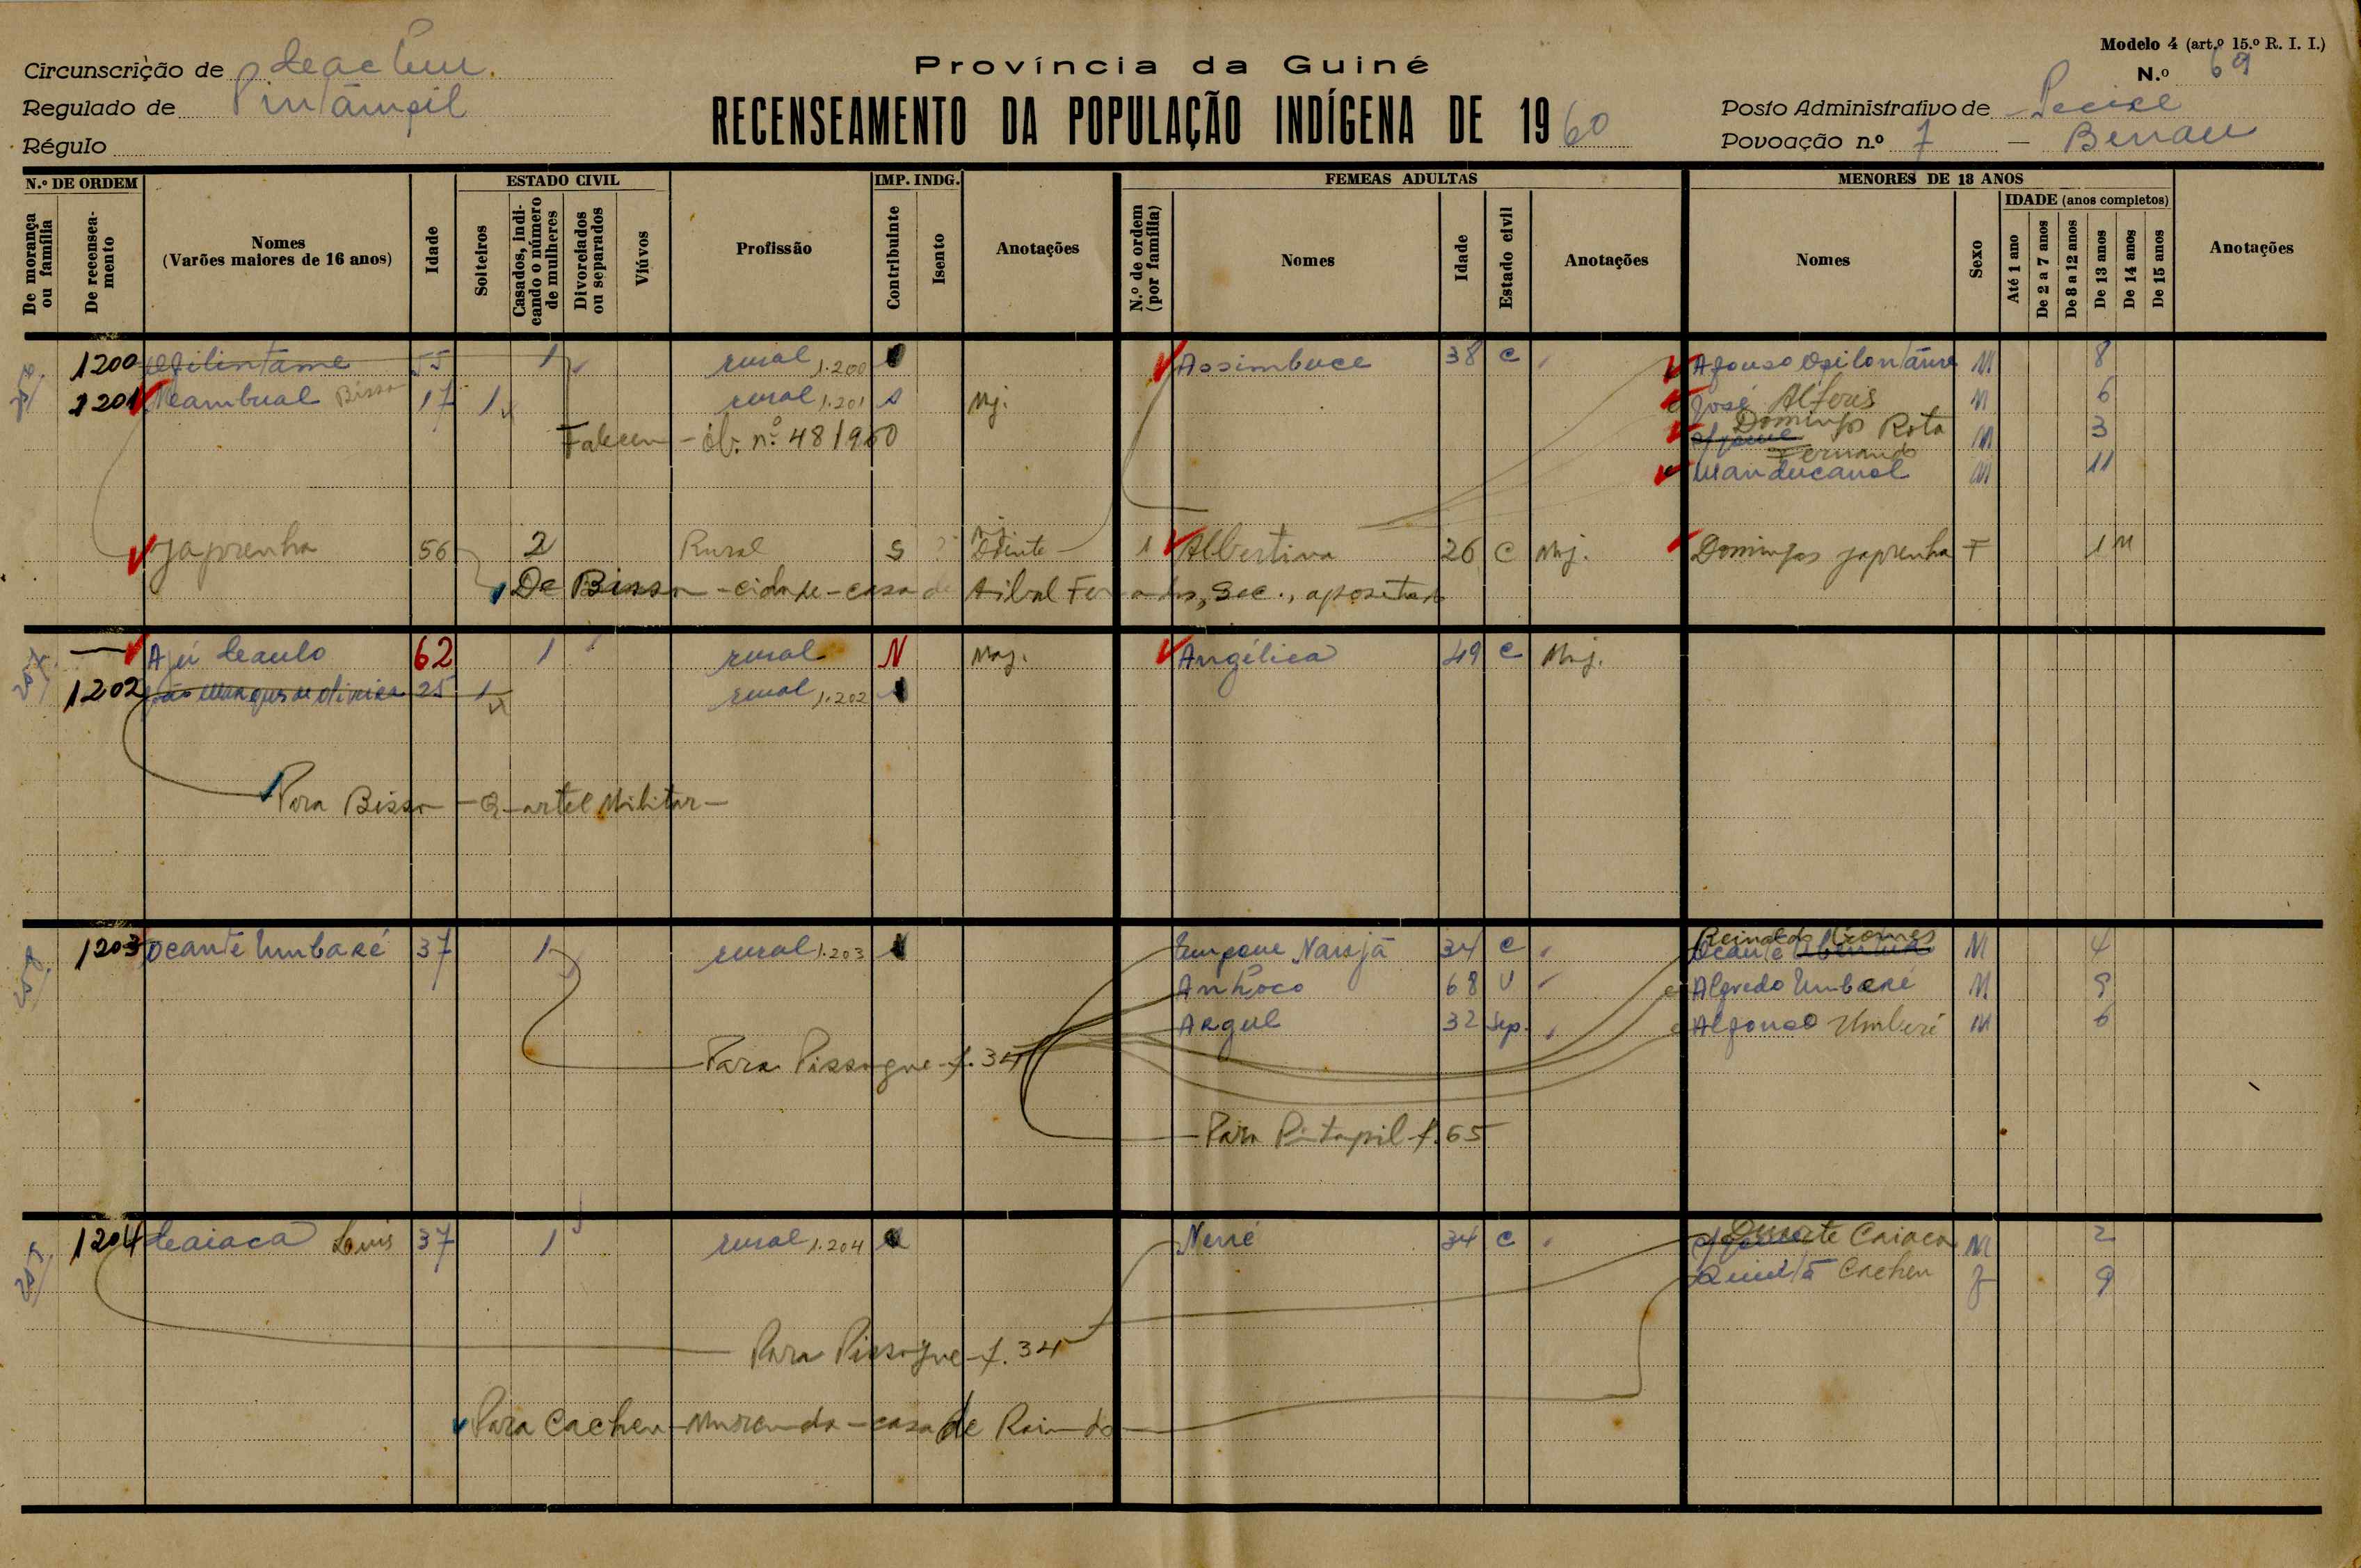 Modelo 4 (art.º 15.º R. I. I.)
N.º 69
Província da Guiné
RECENSEAMENTO DA POPULAÇÃO INDÍGENA DE 1960
Circunscrição de
Regulado de
Régulo
Posto Administrativo de
Povoação n.º 7 –
N.º DE ORDEM
De morança ou família
De recenseamento
Nomes
(Varões maiores de 16 anos)
Idade
ESTADO CIVIL
Solteiros
Casados, indicando o número de mulheres
Divorciados ou separados
Viúvos
Profissão
IMP. INDG.
Contribuinte
Isento
Anotações
FEMEAS ADULTAS
N.º de ordem (por família)
Nomes
Idade
Estado civil
Anotações
MENORES DE 18 ANOS
Nomes
Sexo
IDADE (anos completos)
Até 1 ano
De 2 a 7 anos
De 8 a 12 anos
De 13 anos
De 14 anos
De 15 anos
Anotações
1200 55 1 rural 1.200 Assimbuce 38 C Afonso M 8
1201 17 1 rural 1.201 s Mj. José Alferis M 6
Faleceu – ób. n.º 48/960 Domingos Rota M 3
Fernando
Manducanal M 11
Japrenha 56 2 Rural S Doente 1 Albertina 26 C Mj. Domingas Japrenha F 1 M
De Bissau – cidade – casa de
62 1 rural N Maj. Angélica 49 C Maj.
1202 25 1 rural 1.202
Para Bissau – Quartel Militar –
1203 Ocante Umbaré 37 1 rural 1.203 34 C Reinaldo Gomes
Ocante M 4
Anhoco 68 V Alfredo Umbaré M. 9
Argul 32 Sep. Alfonso Umbaré M 6
Para Pissogue f. 34
Para Pintapil f. 65
1204 Caiaca Luis 37 1 rural 1.204 Nerré 34 C Duarte Caiaca M 2
Quintã Cacheu F 9
Para Pissogue – f. 34
Para Cacheu – – casa de